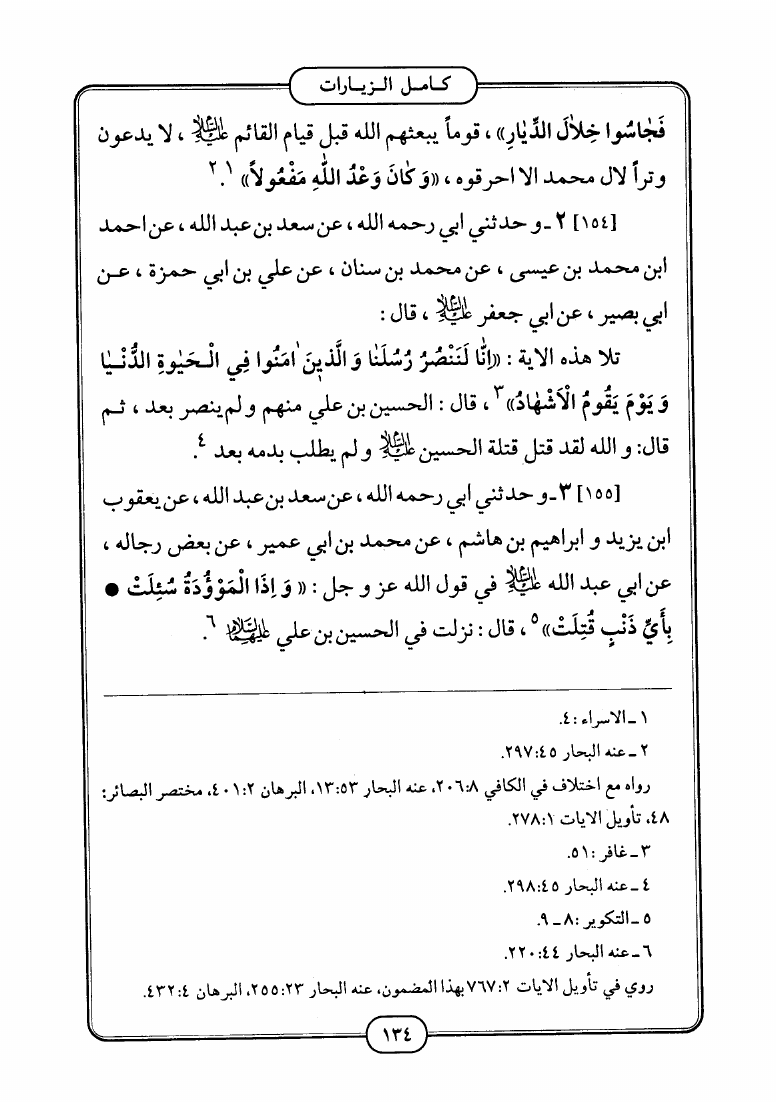 كامل الزيارات
فَجٰاسُوا خِلاٰلَ الدِّيٰارِ»، قوماً يبعثهم الله قبل قيام القائم عليه‌السلام، لا يدعون
وتراً لال محمد الا احرقوه، «وَ كٰانَ وَعْدُ اللّٰهِ مَفْعُولاً»١.٢
[١٥٤] ٢ ـ و حدثني ابي رحمه الله، عن سعد بن عبد الله، عن احمد
ابن محمد بن عيسى، عن محمد بن سنان، عن علي بن ابي حمزة، عن
ابي بصير، عن ابي جعفر عليه‌السلام، قال:
تلا هذه الاية: «اِنّٰا لَنَنْصُرُ رُسُلَنٰا وَ الَّذينَ اٰمَنُوا فِي الْحَيٰوةِ الدُّنْيٰا
وَ يَوْمَ يَقُومُ الْاَشْهٰادُ»٣، قال: الحسين بن علي منهم و لم ينصر بعد، ثم
قال: و الله لقد قتل قتلة الحسين عليه‌السلام و لم يطلب بدمه بعد٤.
[١٥٥] ٣ ـ و حدثني ابي رحمه الله، عن سعد بن عبد الله، عن يعقوب
ابن يزيد و ابراهيم بن هاشم، عن محمد بن ابي عمير، عن بعض رجاله،
عن ابي عبد الله عليه‌السلام في قول الله عز و جل: «وَ اِذَا الْمَوْؤُدَةُ سُئِلَتْ ●
بِأَيِّ ذَنْبٍ قُتِلَتْ»٥، قال: نزلت في الحسين بن علي عليهما‌السلام٦.
١ ـ الاسراء: ٤.
٢ ـ عنه البحار ٤٥:٢٩٧.
رواه مع اختلاف في الكافي ٨:٢٠٦، عنه البحار ٥٣:١٣، البرهان ٢:٤٠١، مختصر البصائر:
٤٨، تأويل الايات ١:٢٧٨.
٣ ـ غافر: ٥١.
٤ ـ عنه البحار ٤٥:٢٩٨.
٥ ـ التكوير: ٨ ـ ٩.
٦ ـ عنه البحار ٤٤:٢٢٠.
روي في تأويل الايات ٢:٧٦٧ بهذا المضمون، عنه البحار ٢٣:٢٥٥، البرهان ٤:٤٣٢.
١٣٤